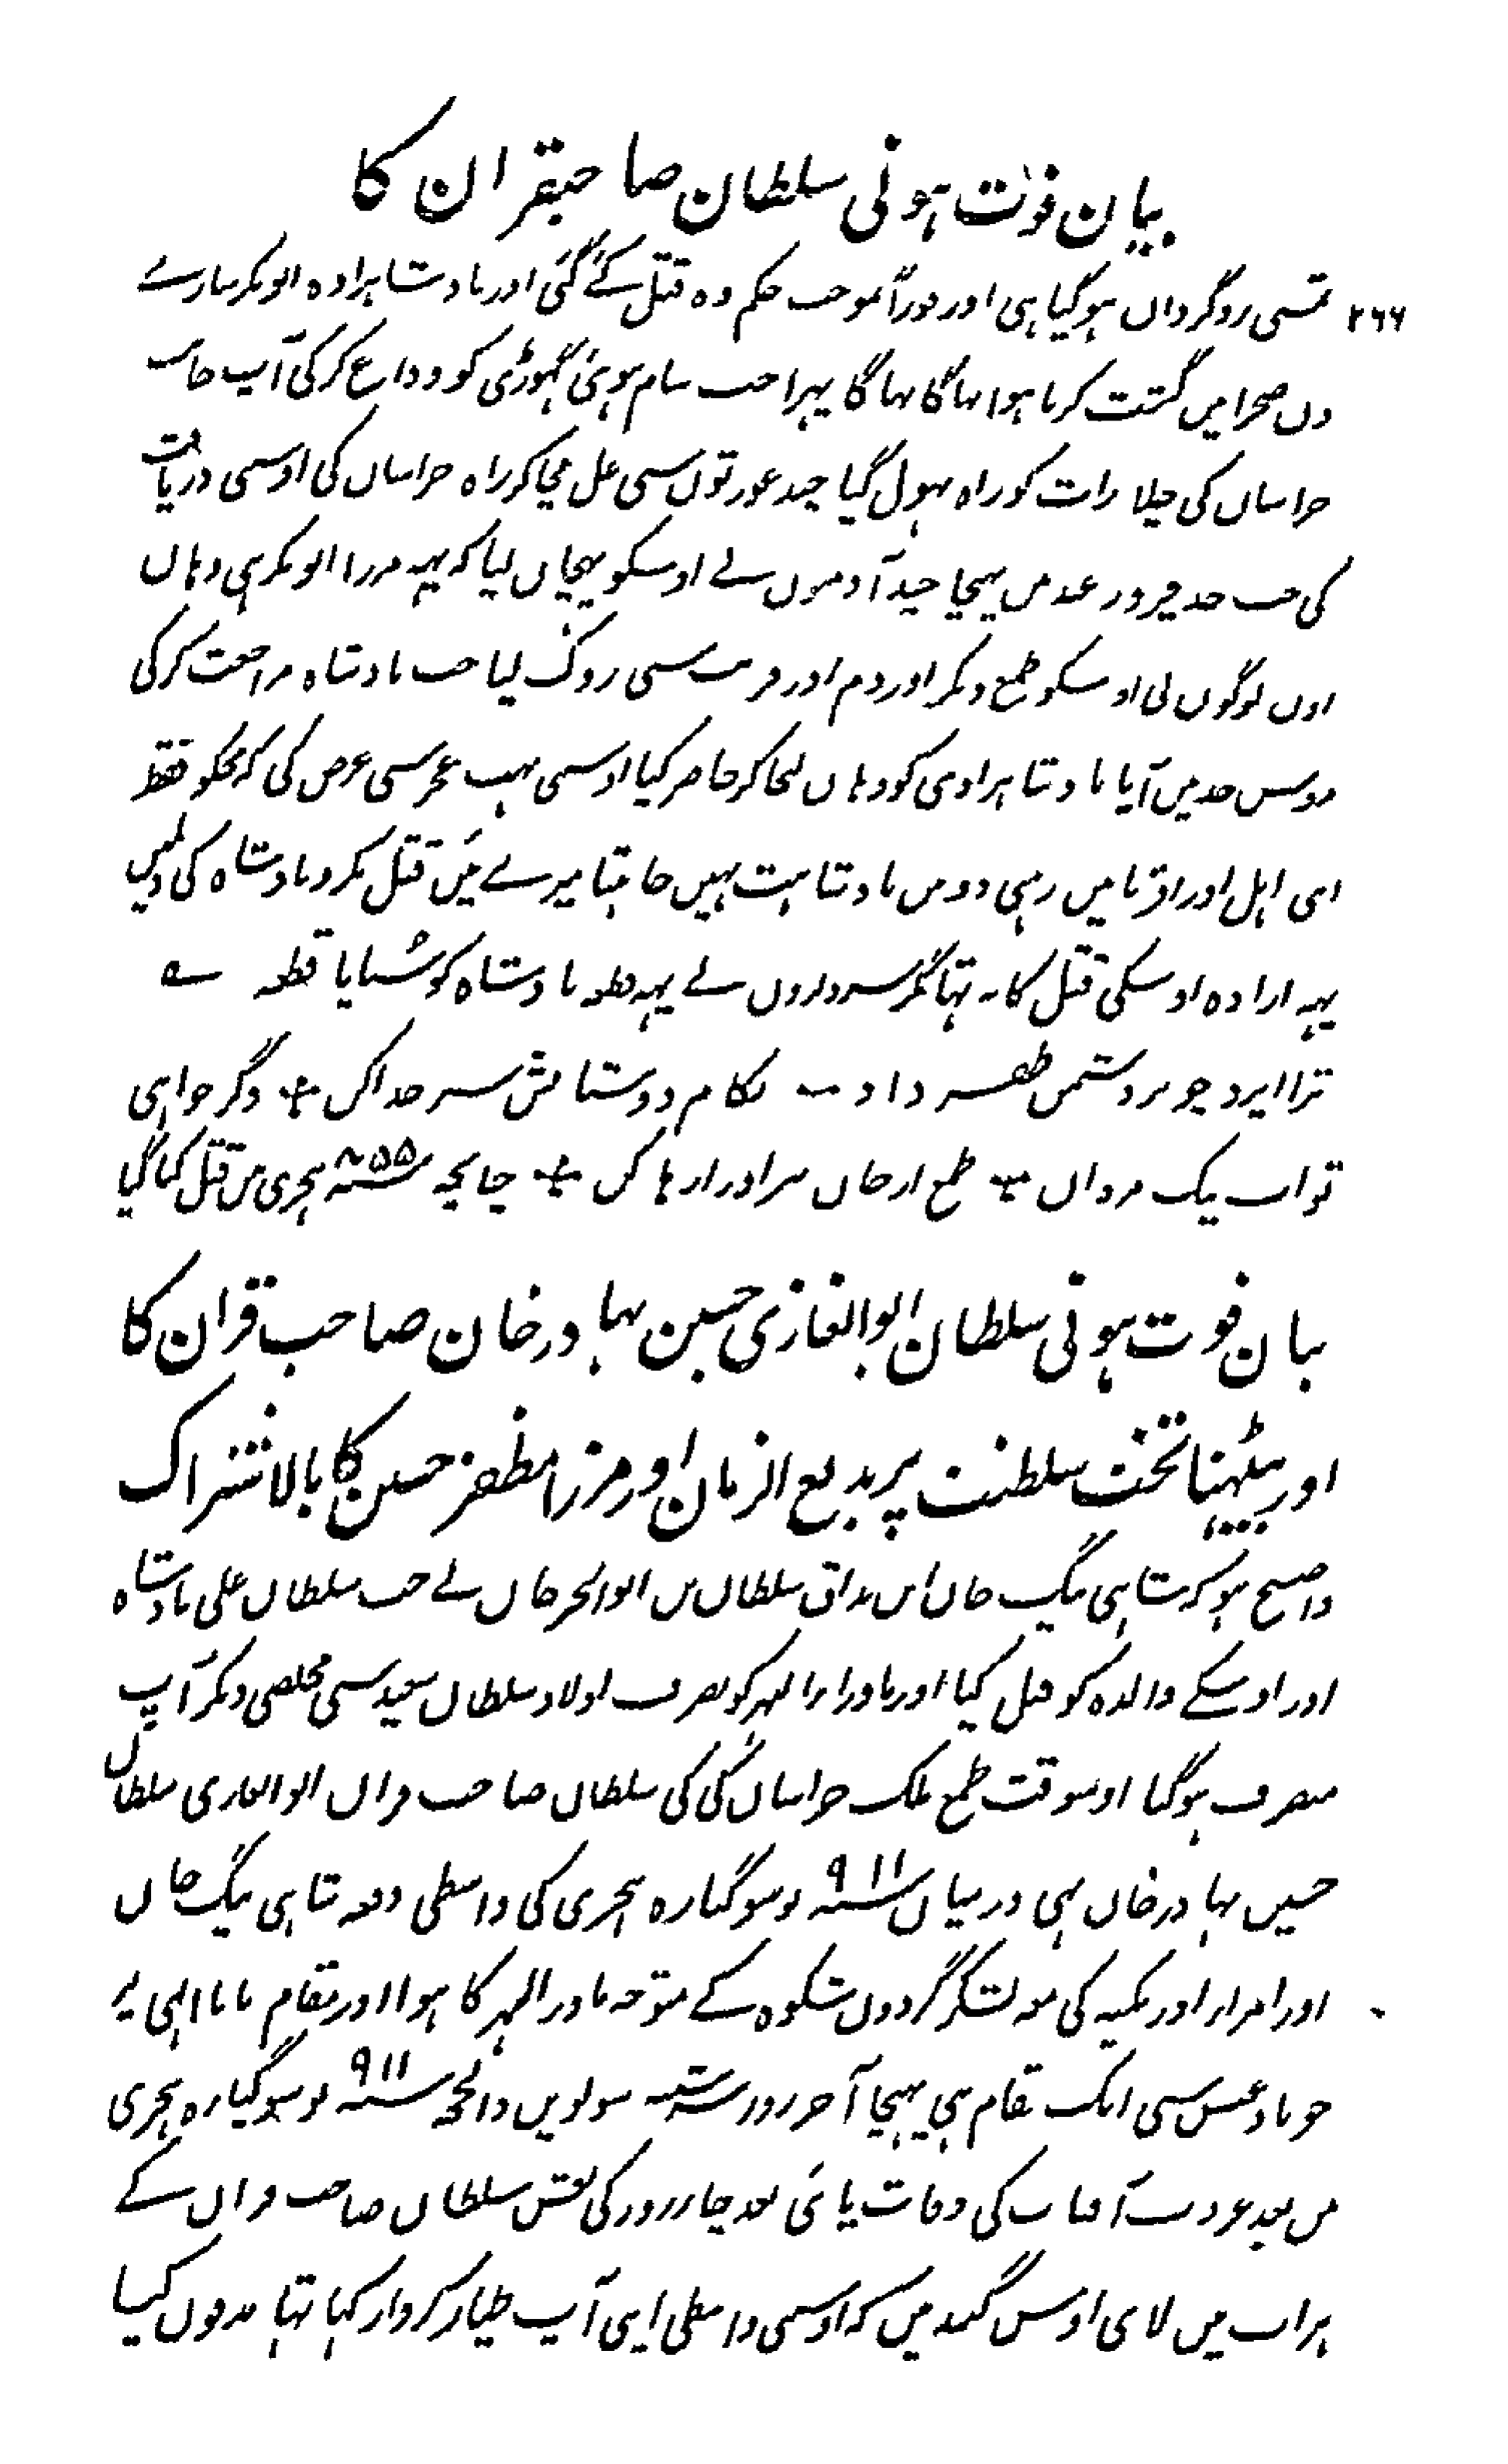 بیان فوت ہونی سلطان صاحبقران کا
۲۶۶ تمسی روگرداں ہوگیا ہی اور فوراً بموجب حکم وہ قتل کئے گئی اور بادشاہزادہ ابوبکر سارے
دن صحرا میں گشت کرتا ہوا بہاگا بہاگا پہرا جب شام ہوئی گہوڑی کو وداع کرکی آپ جانب
خراسان کی چلا رات کو راہ بہول گیا چند عورتوں سی مل ملاکر راہ خراسان کی اوسسی دریافت
کی جب حد فیروز غند میں پہنچا چند آدمیوں نے اوسکو پہچان لیا کہ یہہ مرزا ابوبکر ہی وہاں
اون لوگوں نی اوسکو طمع دیکر اور دم اور فریب سی روک لیا جب بادشاہ مراجعت کرکی
حد میں آیا بادشاہزادی کو وہاں لیجاکر حاضر کیا اوسسی بہت عجز سی عرض کی کہ مجکو فقط
اپنی اہل اور اقربا میں رہنی دو میں بادشاہت نہیں چاہتا میرے تئیں قتل نکرو بادشاہ کی دلمیں
یہہ ارادہ اوسکی قتل کا نہ تہا مگر سرداروں نے یہہ قطعہ بادشاہ کو سنایا قطعہ
ترا ایزد چو بر دشمن ظفر داد بکام دوستانش سر جدا کن وگر خواہی
ثواب نیک مرداں طمع از جان برادر رہا کن چنانچہ سنہ ۸۵۵ ہجری میں قتل کیا گیا
بیان فوت ہونی سلطان ابوالغازی حسین بہادر خان صاحب قران کا
اور بیٹہنا تخت سلطنت پر بدیع الزمان اور مرزا مظفر حسین کا بالاشتراک
واضح ہو کہ شاہی بیگ خان ابن بداق سلطان بن ابوالخیر خان نے جب سلطان علی بادشاہ
اور اوسکے والدہ کو قتل کیا اور ماوراء النہر کو تصرف اولاد سلطان سعید سی مخلصی دیکر آپ
متصرف ہوگیا اوسوقت طمع ملک خراسان کی کی سلطان صاحب قران ابوالغازی سلطان
حسین بہادر خان بہی درمیان سنہ ۹۱۱ نوسوگیارہ ہجری کی واسطی دفعہ شاہی بیگ خان
اور امراء اور کی مہ لشکر گردون شکوہ کے متوجہ ماورالنہر کا ہوا اور بمقام بابا الہی پر
جو بادغیس سی ایک مقام ہی پہنچا آخر روز شنبہ سولویں ذالحجہ سنہ ۹۱۱ نوسوگیارہ ہجری
میں بعد غروب آفتاب کی وفات پائی بعد چار روز کی نعش سلطان صاحب قران کے
ہرات میں لائی اوس گنبد میں کہ اوسسی واسطی اپنی آپ طیار کروا رکہا تہا مدفون کیا